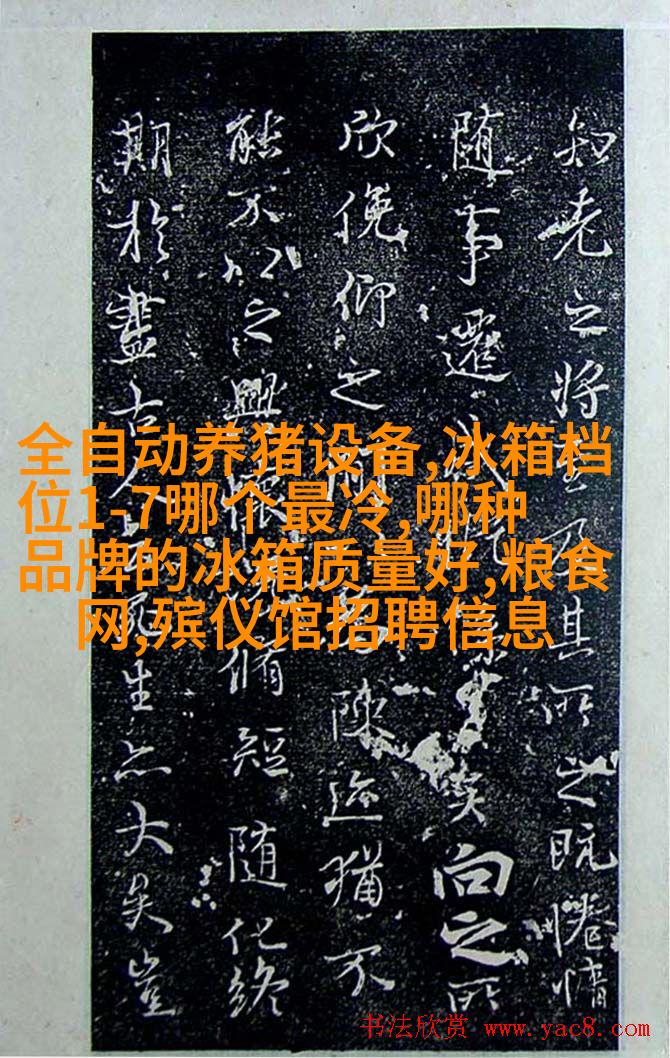 知老之将至及其所之既惓情
随事遷感係之矣向之所
欣俛仰之間為陳迹猶不
能不以之興懷況脩短随化終
期於盡古人云死生亦大矣豈
全自动养猪设备,冰箱档
位1-7哪个最冷,哪种
品牌的冰箱质量好,粮食
网,殡仪馆招聘信息
书法欣赏 www.yac8.com